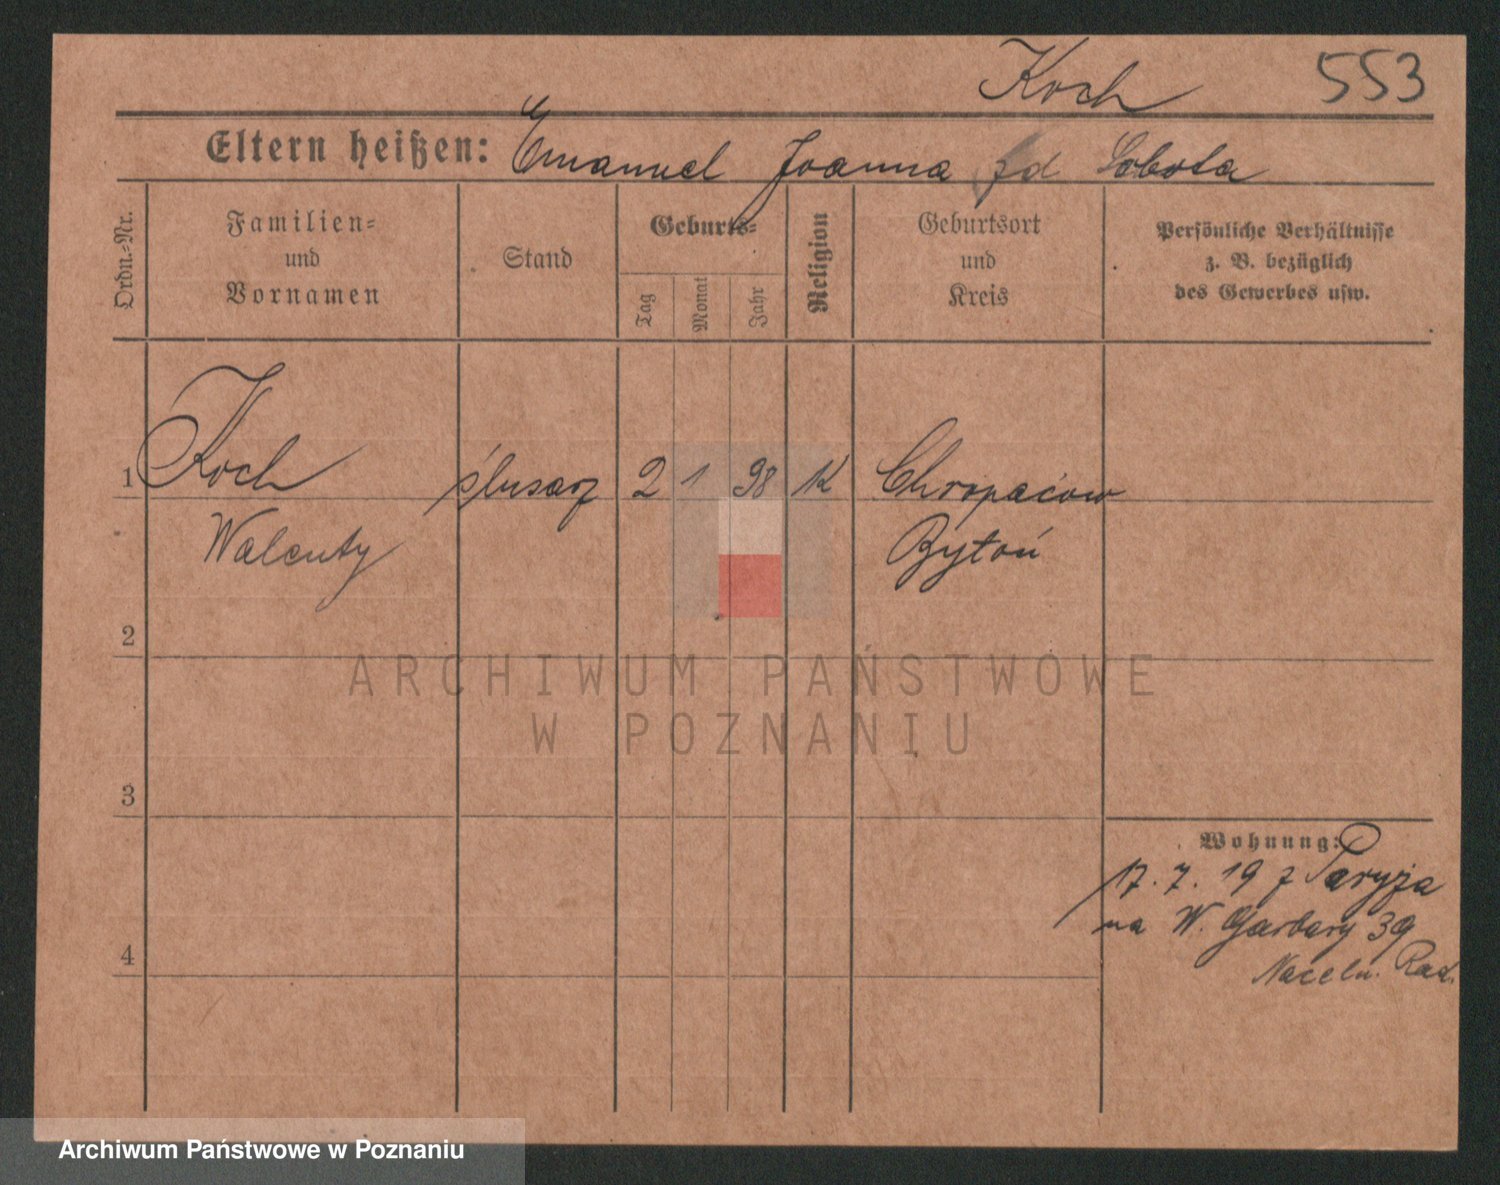 Koch 553
Eltern heißen: Emanuel Joanna zd Sobota
Ordn.-Nr.
Familien-
und
Vornamen
Stand
Geburts-
Tag
Monat
Jahr
Religion
Geburtsort
und
Kreis
Persönliche Verhältnisse
z. B. bezüglich
des Gewerbes usw.
1 Koch ślusarz 2 1 98 K Chropaćow
Walenty Bytoń
2
3
4
Wohnung:
17. 7. 19 z Paryża
na W. Garbary 39
Naceln. Rad.
ARCHIWUM PAŃSTWOWE
W POZNANIU
Archiwum Państwowe w Poznaniu